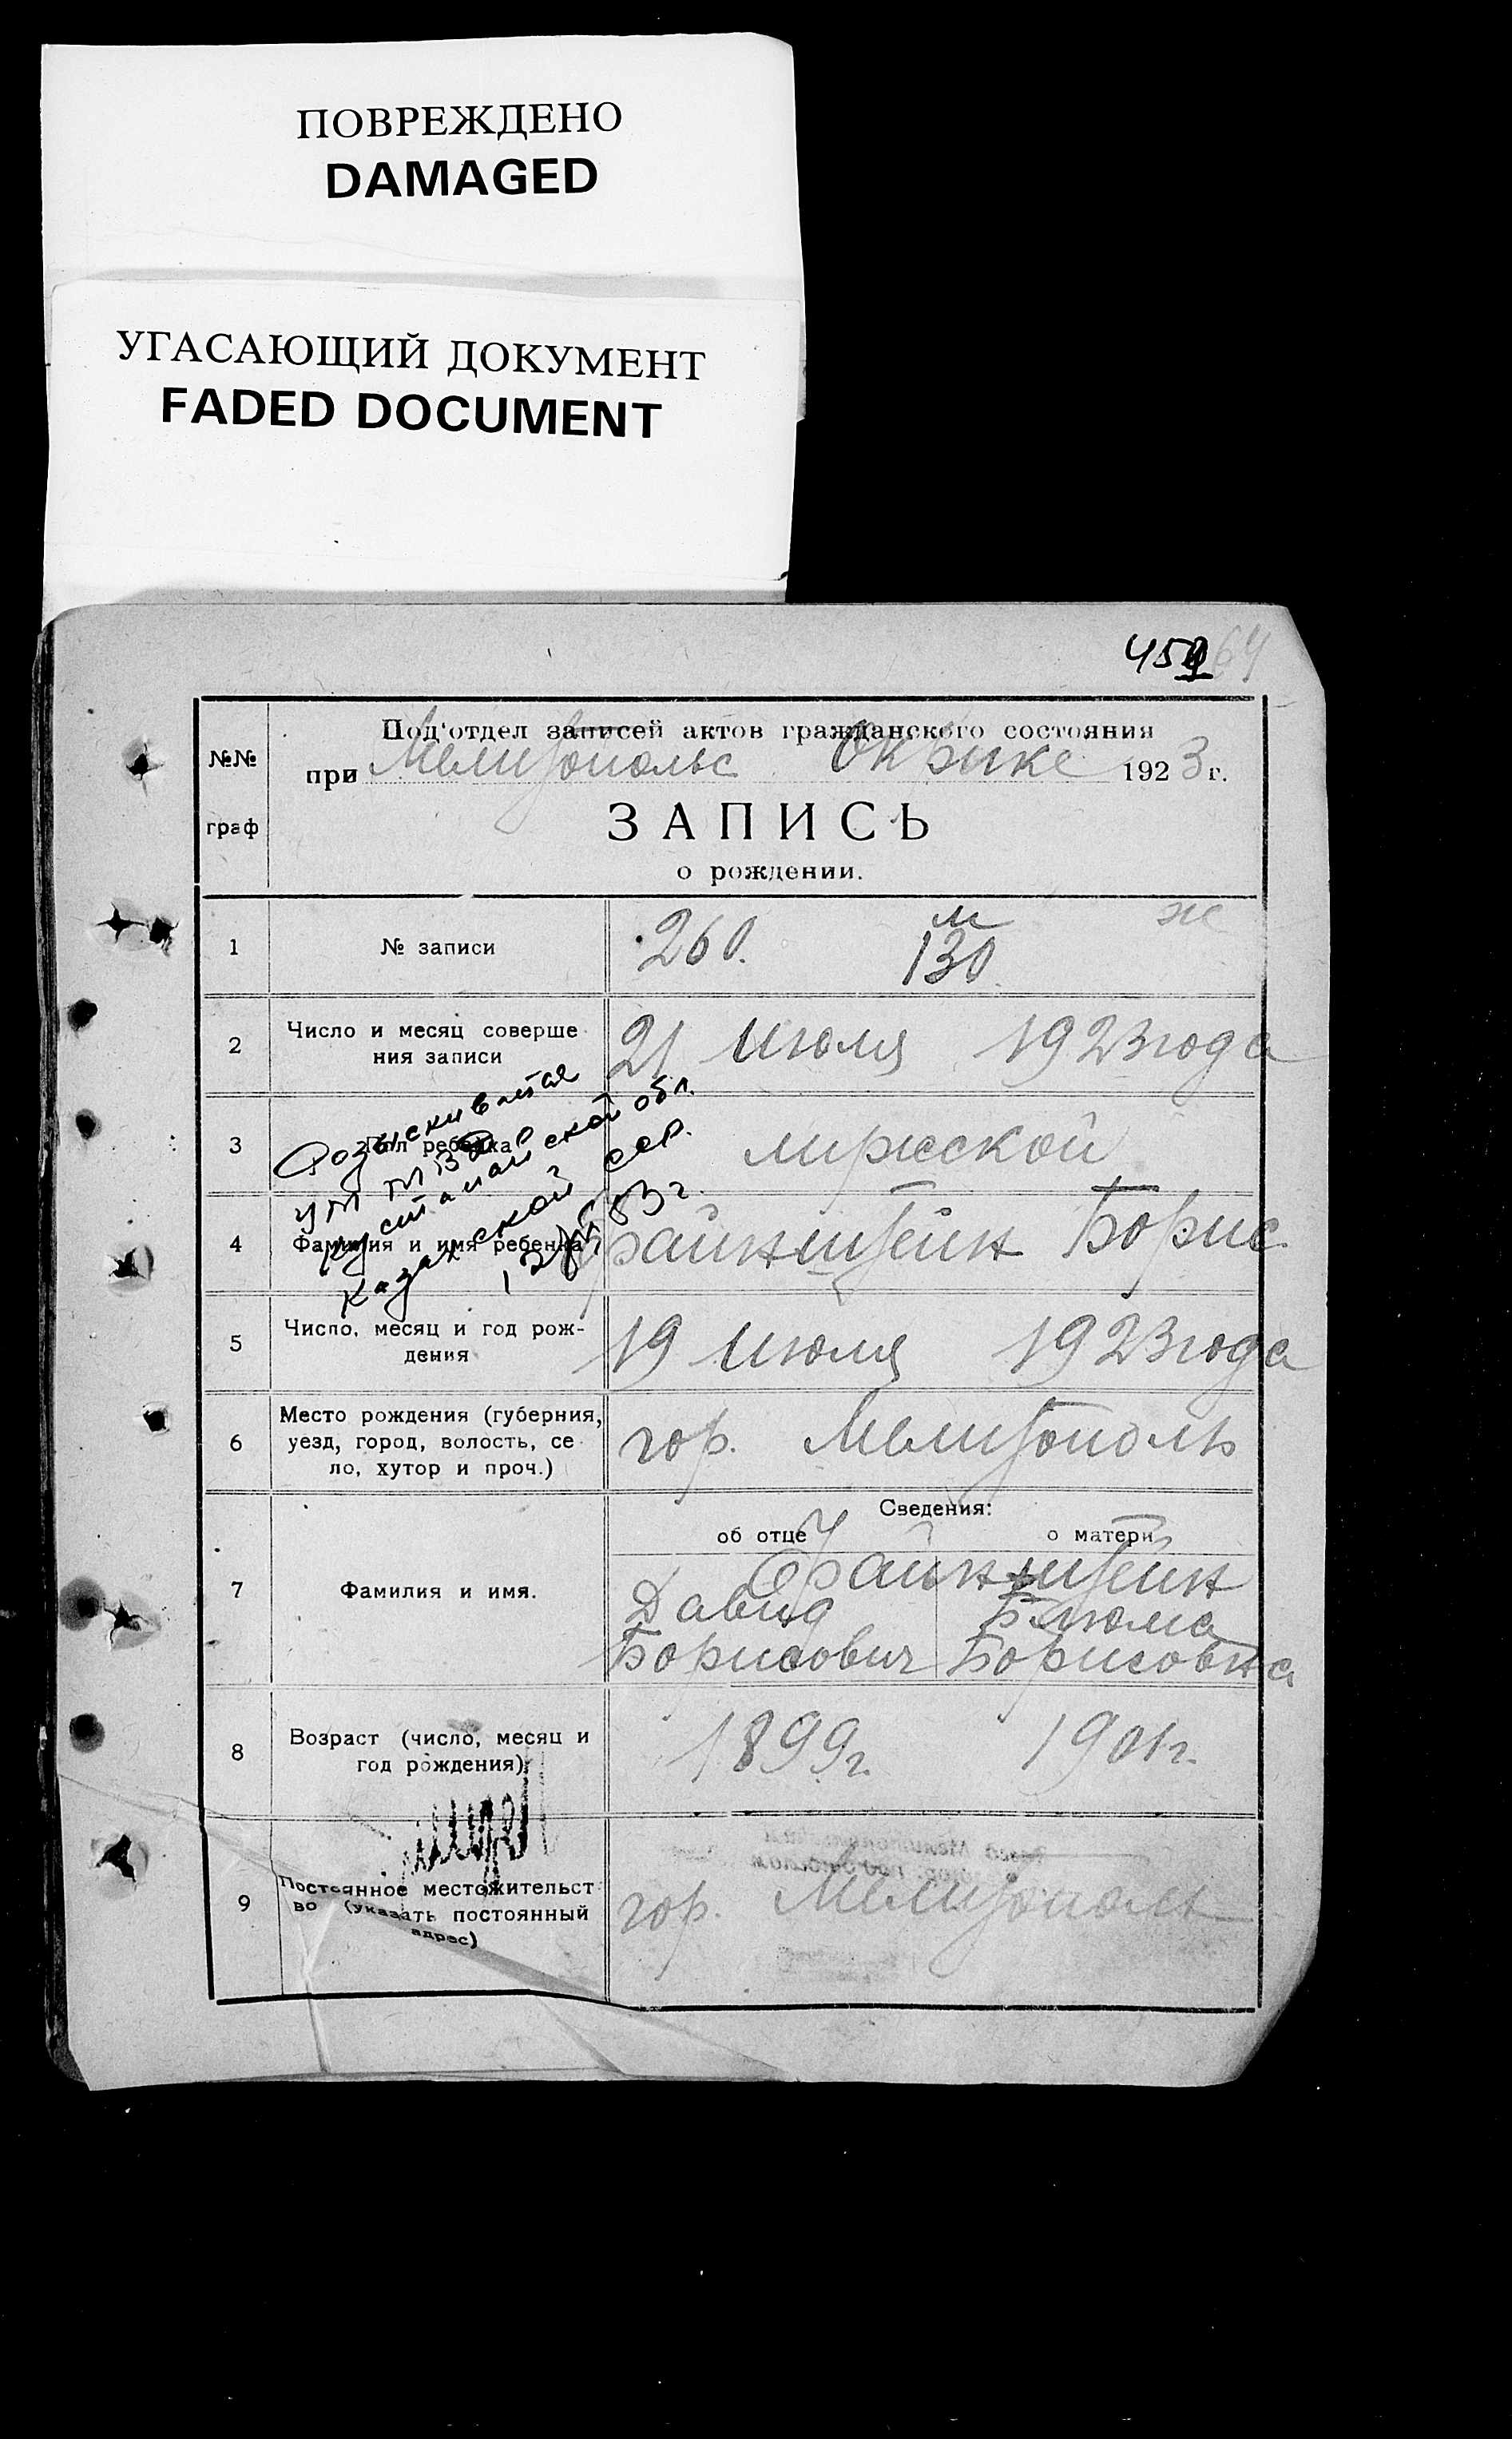 ПОВРЕЖДЕНО
DAMAGED
УГАСАЮЩИЙ ДОКУМЕНТ
FADED DOCUMENT
459 64
№№
граф
Под'отдел записей актов гражданского состояния
при Мелитопольс Окрике 1923 г.
ЗАПИСЬ
о рождении.
1 № записи 260. м 130 ж
2 Число и месяц соверше
ния записи 21 Июля 1923 года
3 Пол ребенка мужской
Разыскивается
Кустанайской обл.
Казахской ССР.
83 г.
4 Фамилия и имя ребенка Файнштейн Борис
5 Число, месяц и год рож-
дения 19 Июля 1923 года
6 Место рождения (губерния,
уезд, город, волость, се
ло, хутор и проч.) гор. Мелитополь
Сведения:
об отце о матери
7 Фамилия и имя. Файнштейн
Давид Блюма
Борисович Борисовна
8 Возраст (число, месяц и
год рождения) 1899 г. 1901 г.
9 Постоянное местожительст
во (указать постоянный
адрес) гор. Мелитополь